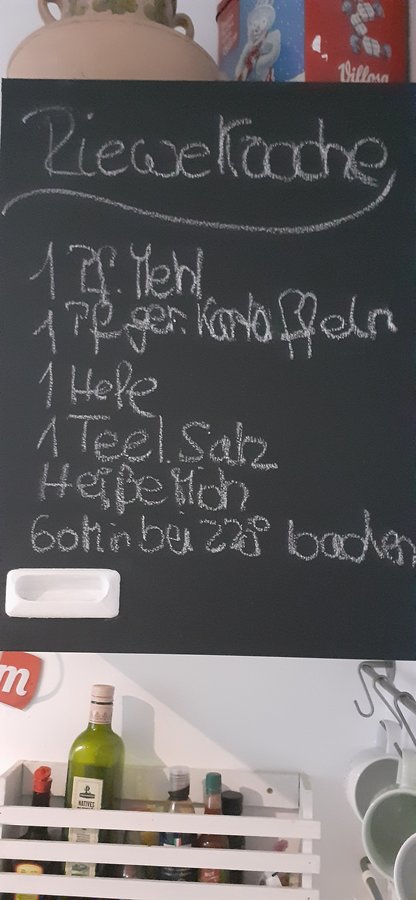 Villosa
Riewekooche
1 Pf. Mehl
1 Pf. ger. Kartoffeln
1 Hefe
1 Teel. Salz
Heiße Milch
60 Min bei 220° backen
m
NATIVES